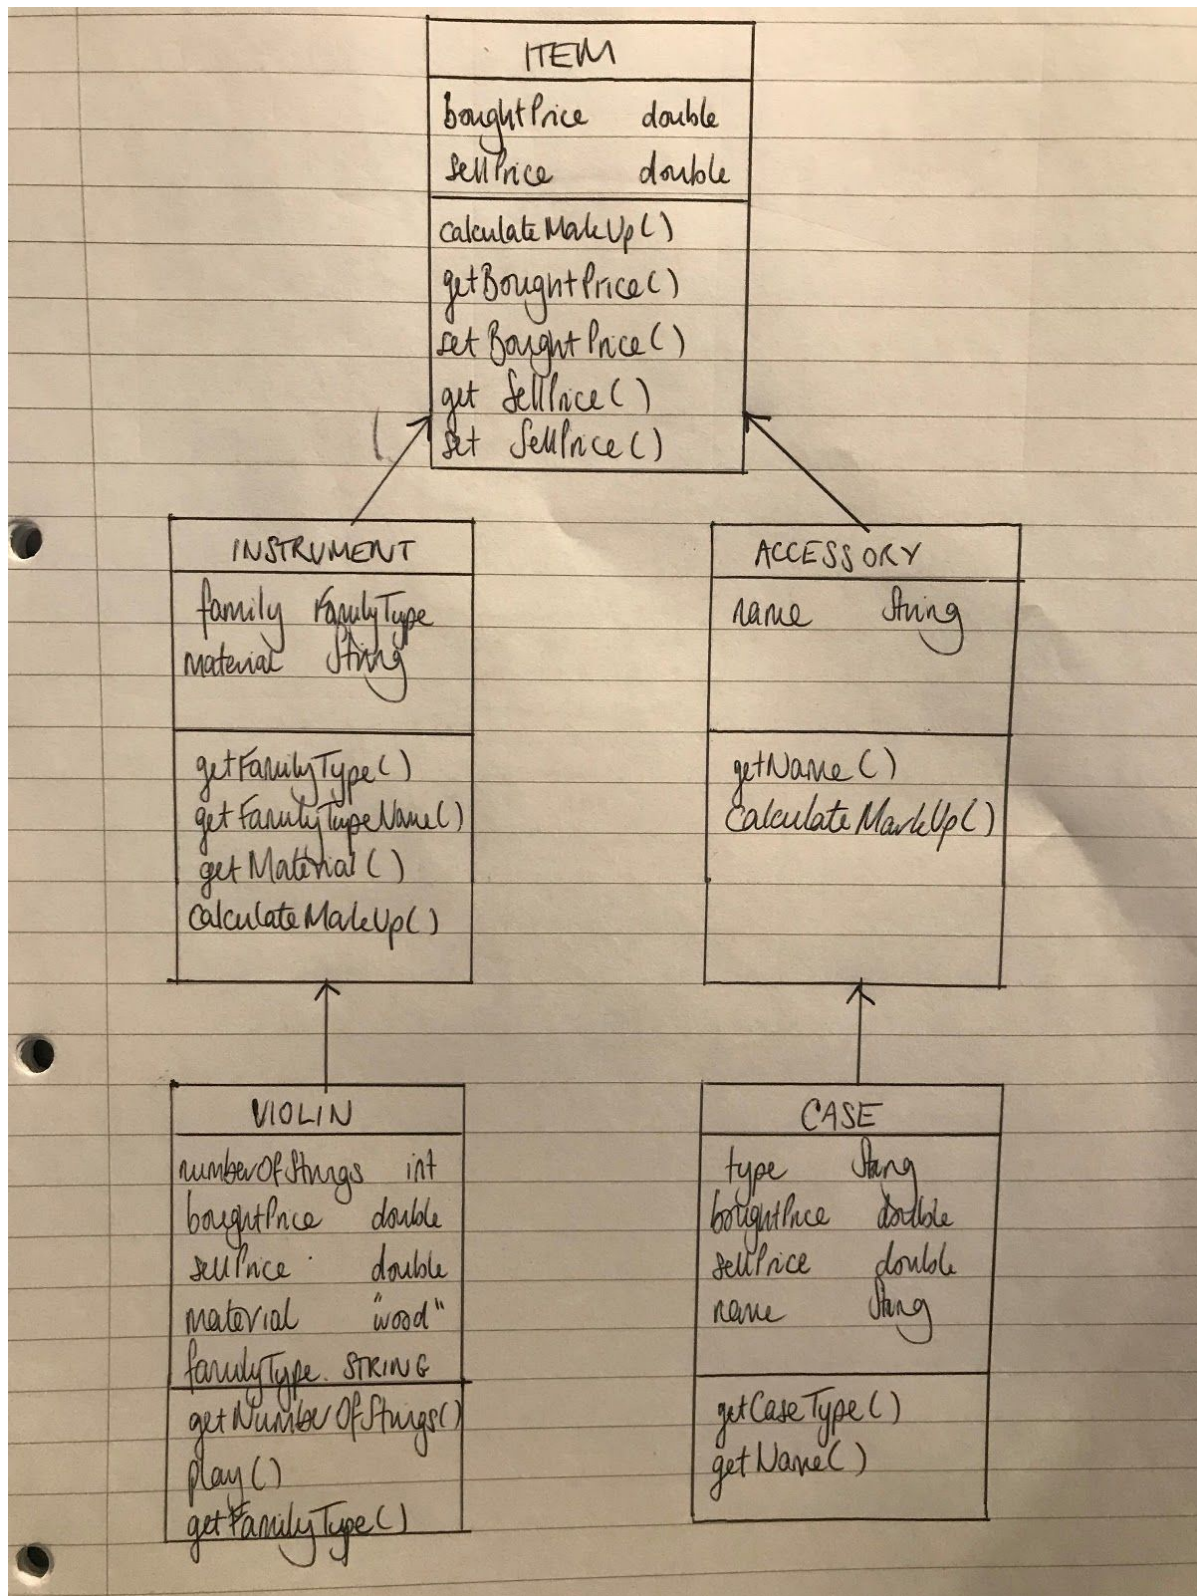 ITEM
boughtPrice double
sellPrice double
calculateMarkUp()
getBoughtPrice()
setBoughtPrice()
get SellPrice()
set SellPrice()
INSTRUMENT
family FamilyType
material String
getFamilyType()
getFamilyTypeName()
getMaterial()
calculateMarkUp()
ACCESSORY
name String
getName()
calculateMarkUp()
VIOLIN
numberOfStrings int
boughtPrice double
sellPrice double
material "wood"
familyType. STRING
getNumberOfStrings()
play()
getFamilyType()
CASE
type String
boughtPrice double
sellPrice double
name String
getCaseType()
getName()